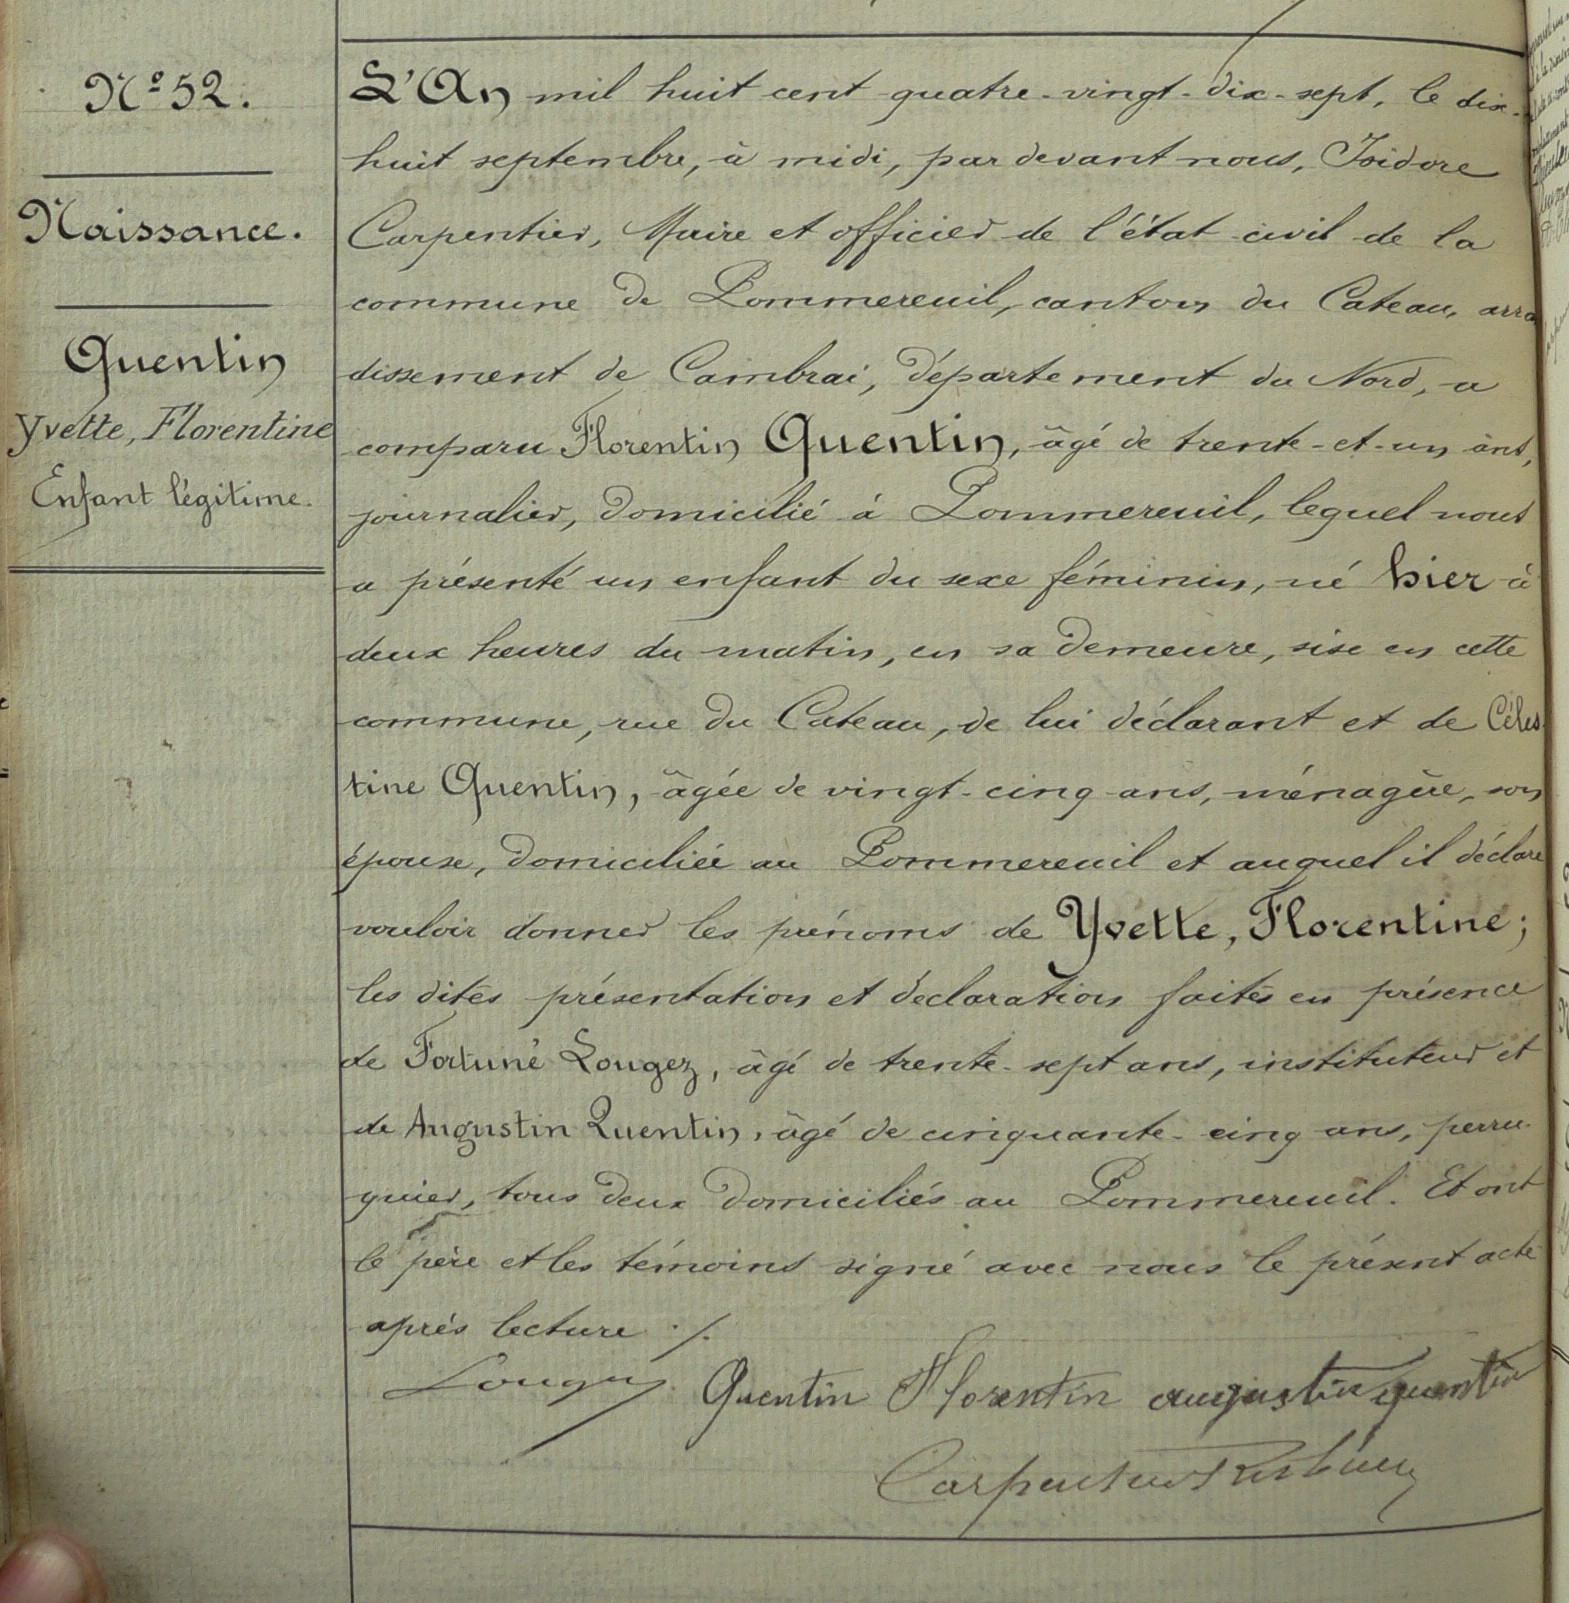 N° 52.
Naissance.
Quentin
Yvette, Florentine
Enfant légitime.
L'An mil huit cent quatre-vingt-dix-sept, le dix-
huit septembre, à midi, par devant nous, Isidore
Carpentier, Maire et officier de l'état civil de la
commune de Pommereuil, canton du Cateau, arro
dissement de Cambrai, département du Nord, a
comparu Florentin Quentin, âgé de trente-et-un ans,
journalier, domicilié à Pommereuil, lequel nous
a présenté un enfant du sexe féminin, né hier à
deux heures du matin, en sa demeure, sise en cette
commune, rue du Cateau, de lui déclarant et de Céles
tine Quentin, âgée de vingt-cinq ans, ménagère, son
épouse, domiciliée au Pommereuil et auquel il déclare
vouloir donner les prénoms de Yvette, Florentine;
les dites présentation et déclaration faites en présence
de Fortuné Lougez, âgé de trente-sept ans, instituteur et
de Augustin Quentin, âgé de cinquante-cinq ans, perru-
quier, tous deux domiciliés au Pommereuil. Et ont
le père et les témoins signé avec nous le présent acte
après lecture ./.
Lougez Quentin Florentin augustin quentin
Carpentier